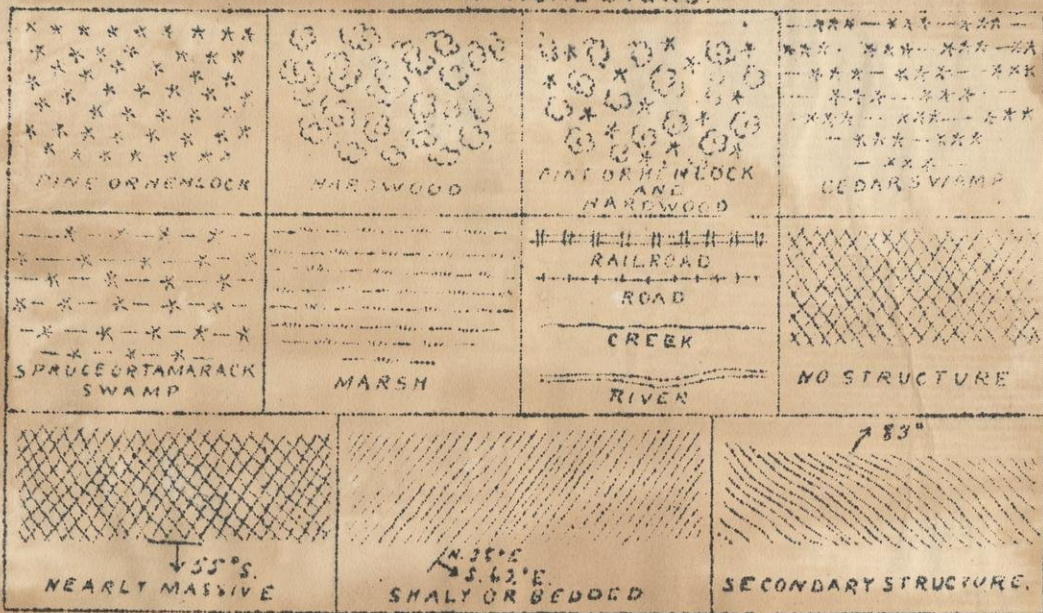 PINE OR HEMLOCK
HARDWOOD
PINE OR HEMLOCK
AND
HARDWOOD
CEDAR SWAMP
SPRUCE OR TAMARACK
SWAMP
MARSH
RAILROAD
ROAD
CREEK
RIVER
NO STRUCTURE
55° S.
NEARLY MASSIVE
SHALY OR BEDDED
83°
SECONDARY STRUCTURE.